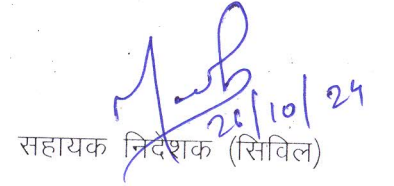 26/10/24
सहायक निदेशक (सिविल)